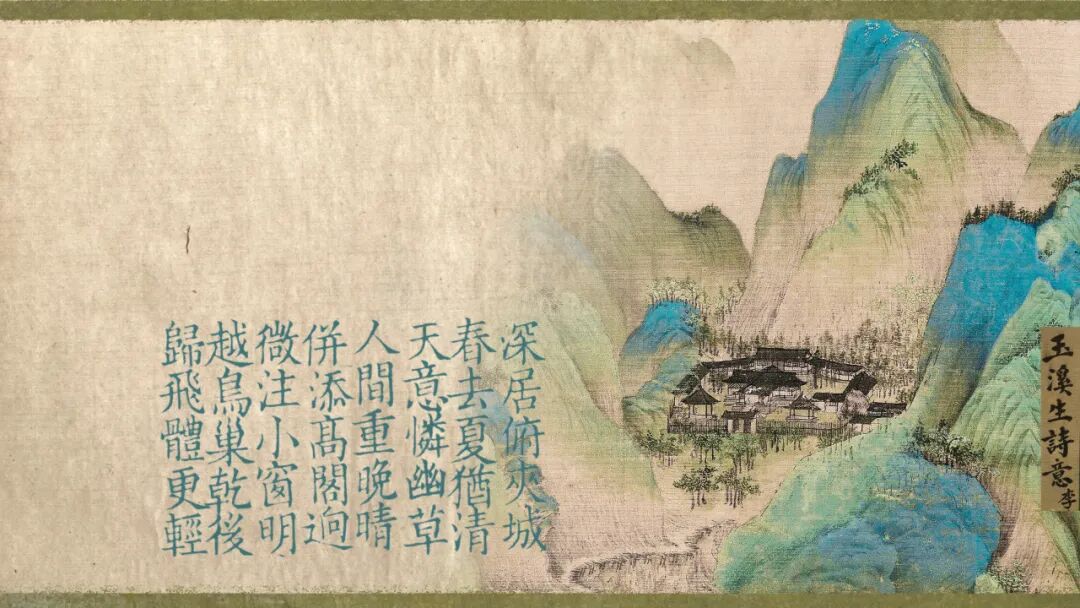 玉溪生詩意 李
深居俯夾城
春去夏猶清
天意憐幽草
人間重晚晴
併添髙閣逈
微注小窗明
越鳥巢乾後
歸飛體更輕